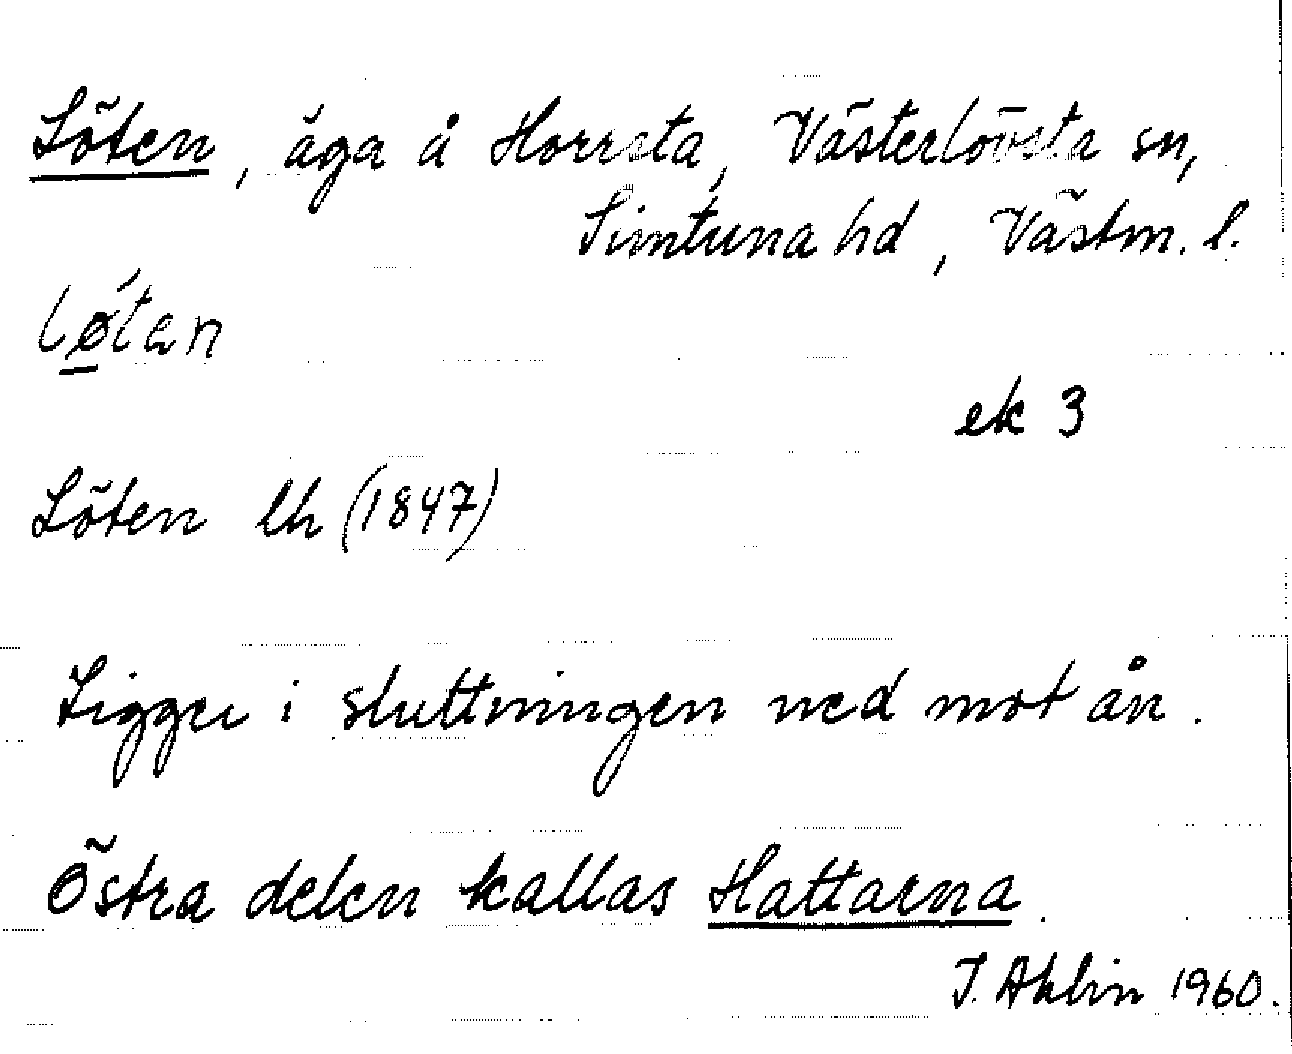 Löten, äga å Horrsta, Västerlövsta sn,
Simtuna hd, Västm. l.
lø´tan
ek 3
Löten lh (1847)
Ligger i sluttningen ned mot ån.
Östra delen kallas Hattarna.
I. Ahlin 1960.